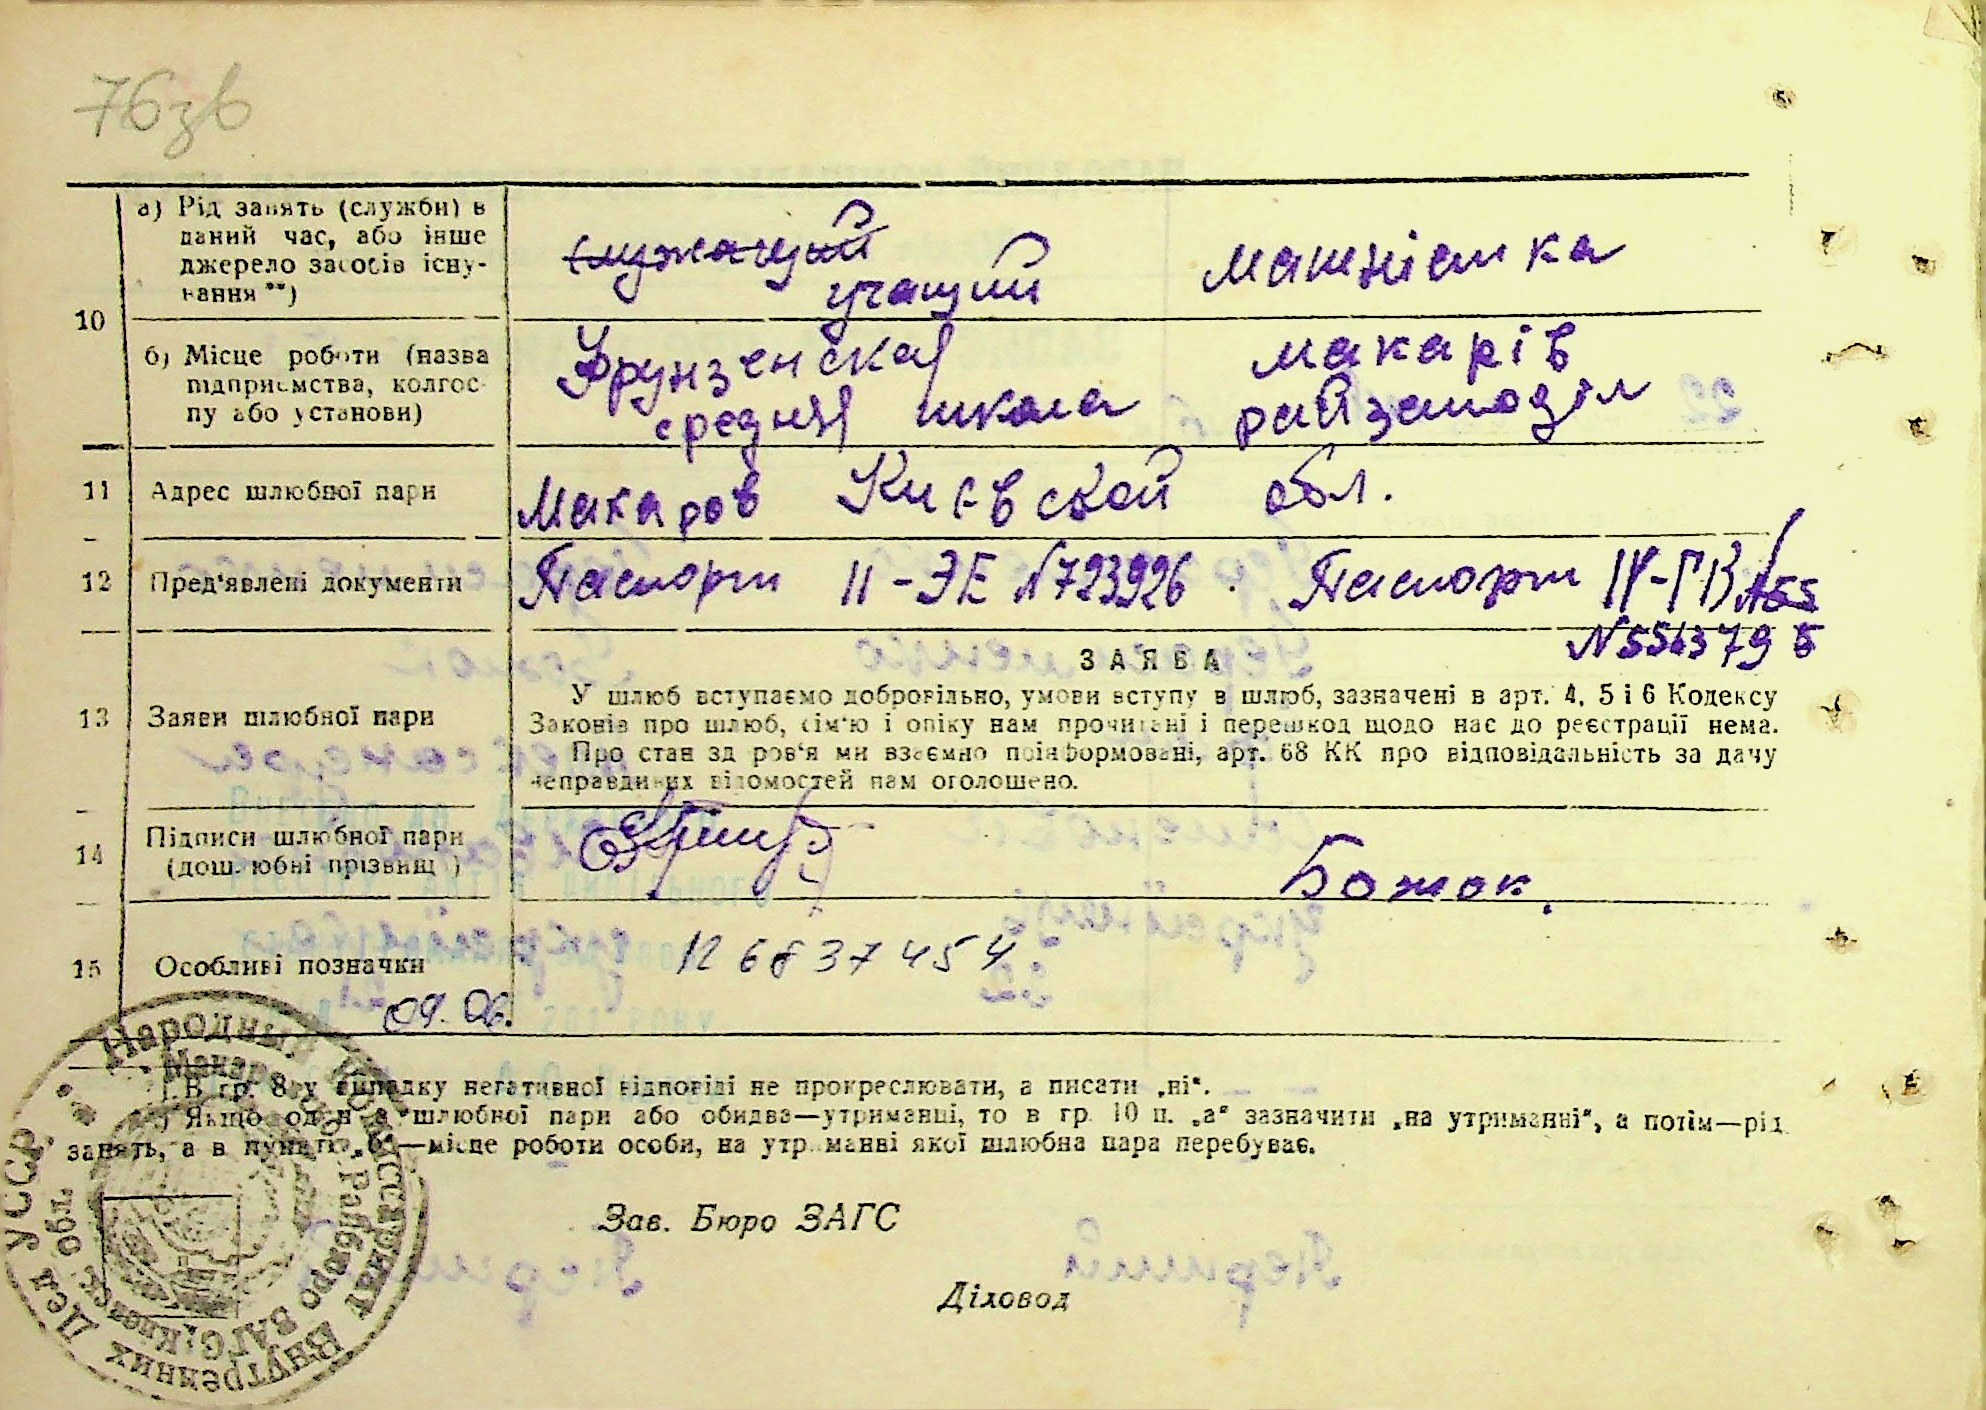 76зв
а) Рід занять (служби) в
даний час, або інше
джерело засобів існу-
вання **)
служащий
учащий
машиністка
10
б) Місце роботи (назва
підприємства, колгос-
пу або установи)
Фрунзенская
средняя школа
макарів
райземвідділ
11 Адрес шлюбної пари
Макаров Киевской обл.
12 Пред'явлені документи
Паспорт II-ЭЕ N723926. Паспорт IV-ГВ
N556379
ЗАЯВА
13 Заяви шлюбної пари
У шлюб вступаємо добровільно, умови вступу в шлюб, зазначені в арт. 4, 5 і 6 Кодексу
Законів про шлюб, сім'ю і опіку нам прочитані і перешкод щодо нас до реєстрації нема.
Про стан здоров'я ми взаємно поінформовані, арт. 68 КК про відповідальність за дачу
неправдивих відомостей нам оголошено.
14
Підписи шлюбної пари
(дошлюбні прізвища)
Божок
15 Особливі позначки
126837454
09.06.
1. В гр. 8 у випадку негативної відповіді не прокреслювати, а писати „ні“.
) Якщо один з шлюбної пари або обидва—утриманці, то в гр. 10 п. „а“ зазначити „на утриманні“, а потім—рід
занять, а в пункті „б“—місце роботи особи, на утриманні якої шлюбна пара перебуває.
Зав. Бюро ЗАГС
Діловод
Народный Комиссариат Внутренних Дел УССР
Райбюро ЗАГС Киевск. обл.